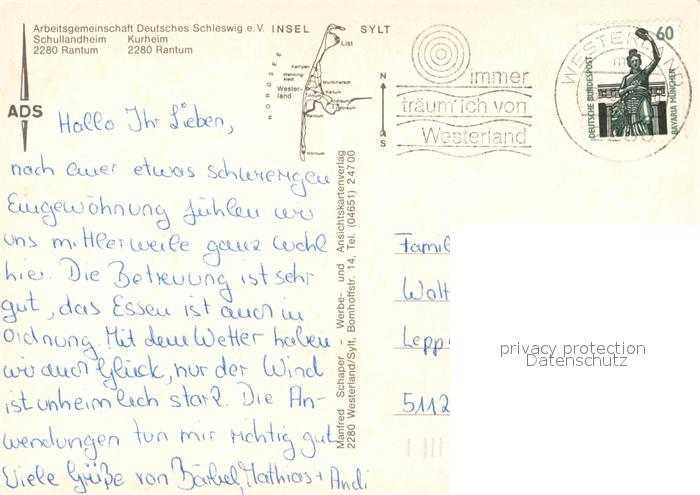 Arbeitsgemeinschaft Deutsches Schleswig e.V.
Schullandheim Kurheim
2280 Rantum 2280 Rantum
ADS
INSEL SYLT
NORDSEE
List
Kampen
Wenningstedt
Munkmarsch
Westerland
Keitum
Rantum
Hörnum
N
S
immer
träum'ich von
Westerland
WESTERLAND
60
DEUTSCHE BUNDESPOST
BAVARIA MÜNCHEN
Hallo Ihr Lieben,
nach einer etwas schwierigen
Eingewöhnung fühlen wir
uns mittlerweile ganz wohl
hier. Die Betreuung ist sehr
gut, das Essen ist auch in
Ordnung. Mit dem Wetter haben
wir auch Glück, nur der Wind
ist unheimlich stark. Die An-
wendungen tun mir richtig gut
Viele Grüße von Bärbel, Mathias + Andi
Manfred Schaper – Werbe- und Ansichtskartenverlag
2280 Westerland/Sylt, Bomhoffstr. 14, Tel. (04651) 24700
Famil
Walt
Lepp
5112
privacy protection
Datenschutz